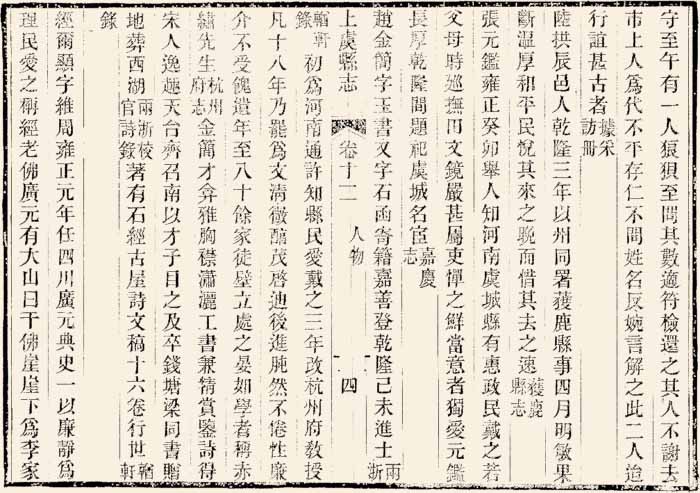 守至午有一人狼狽至問其數適符檢還之其人不謝去
市上人爲代不平存仁不問姓名反婉言解之此二人迨
行誼甚古者據采訪冊
陸拱辰邑人乾隆三年以州同署獲鹿縣事四月明敏果
斷溫厚和平民悅其來之晚而借其去之速獲鹿縣志
張元鑑雍正癸卯舉人知河南虞城縣有惠政民戴之若
父母時巡撫田文鏡嚴甚屬吏憚之鮮當意者獨愛元鑑
長厚乾隆間題祀虞城名宦嘉慶志
趙金簡字玉書又字石函寄籍嘉善登乾隆己未進士兩浙
上虞縣志 卷十二 人物 四
輶軒錄初爲河南通許知縣民愛戴之三年改杭州府敎授
凡十八年乃罷爲文清微醞茂啓迪後進肫然不倦性廉
介不受餽遺年至八十餘家徒壁立處之晏如學者稱赤
繡先生杭州府志金簡才弇雅胸襟瀟灑工書兼精賞鑒詩得
宋人逸趣天台齊召南以才子目之及卒錢塘梁同書贈
地葬西湖兩浙校官詩錄著有石經古屋詩文稿十六卷行世輶軒
錄
經爾顯字維周雍正元年任四川廣元典史一以廉靜爲
理民愛之稱經老佛廣元有大山曰千佛崖崖下爲李家